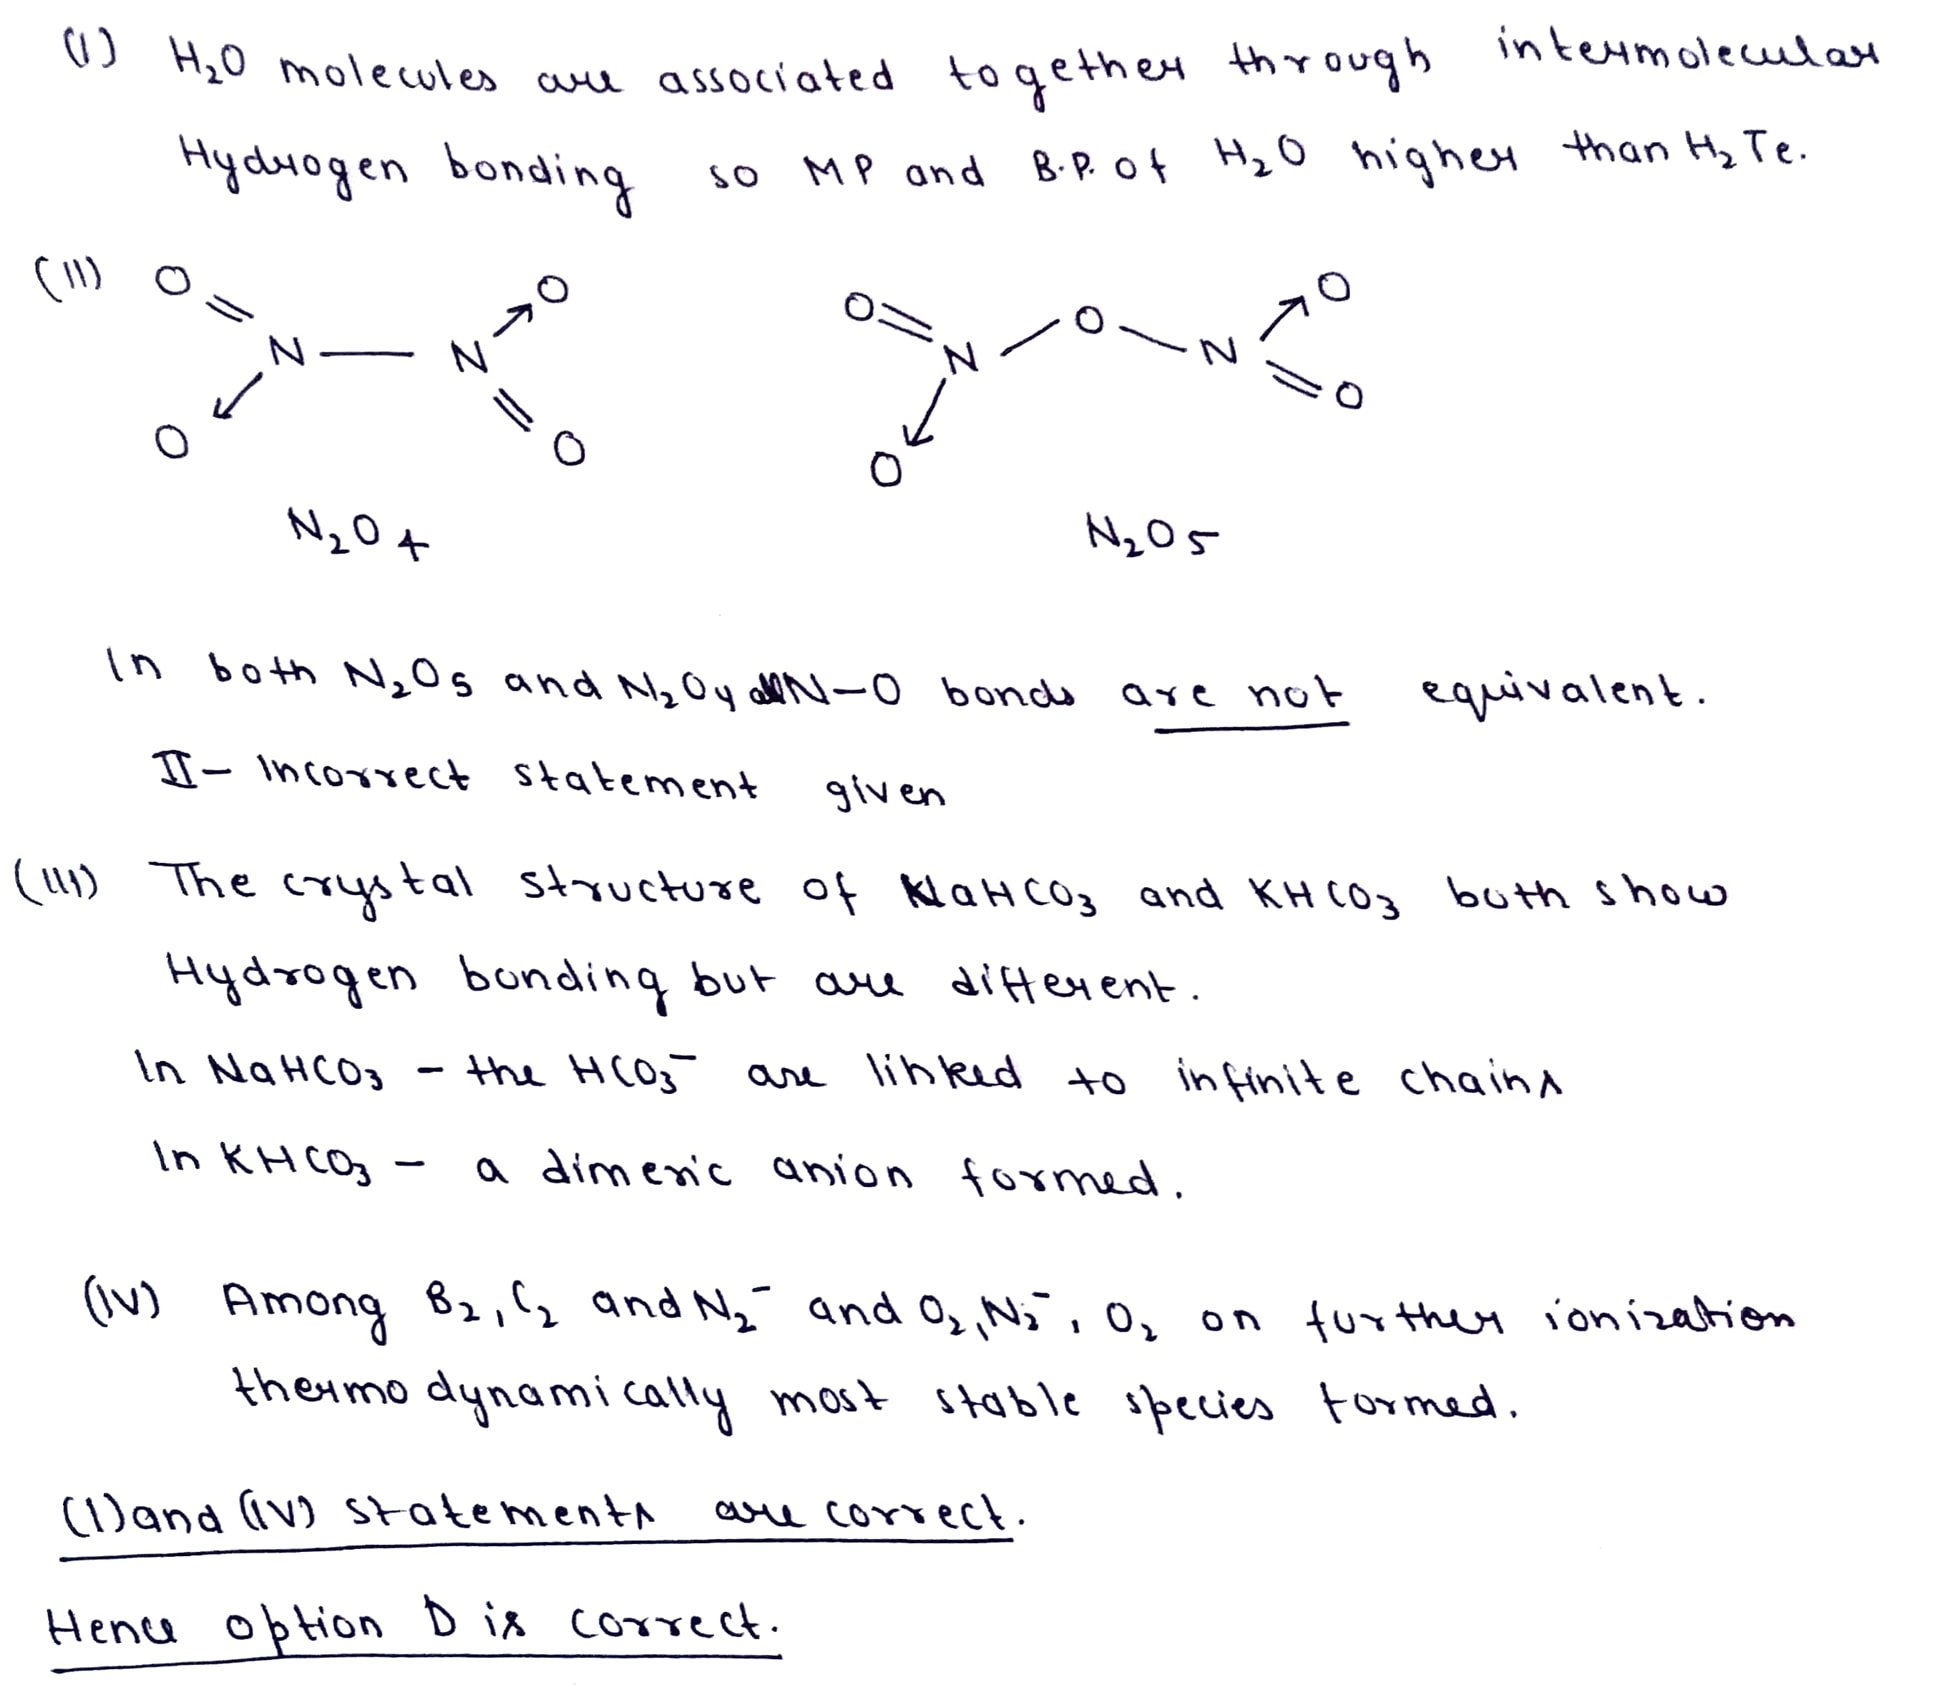 (I) H₂O molecules are associated together through intermolecular
Hydrogen bonding so MP and B.P. of H₂O higher than H₂Te.
(II) O=N(→O)—N(→O)=O O=N(→O)—O—N(→O)=O
N₂O₄ N₂O₅
In both N₂O₅ and N₂O₄ all N–O bonds are not equivalent.
II– Incorrect statement given
(III) The crystal structure of NaHCO₃ and KHCO₃ both show
Hydrogen bonding but are different.
In NaHCO₃ – the HCO₃⁻ are linked to infinite chains
In KHCO₃ – a dimeric anion formed.
(IV) Among B₂, C₂ and N₂⁻ and O₂, N₂⁻, O₂ on further ionization
thermodynamically most stable species formed.
(I) and (IV) statements are correct.
Hence option D is correct.